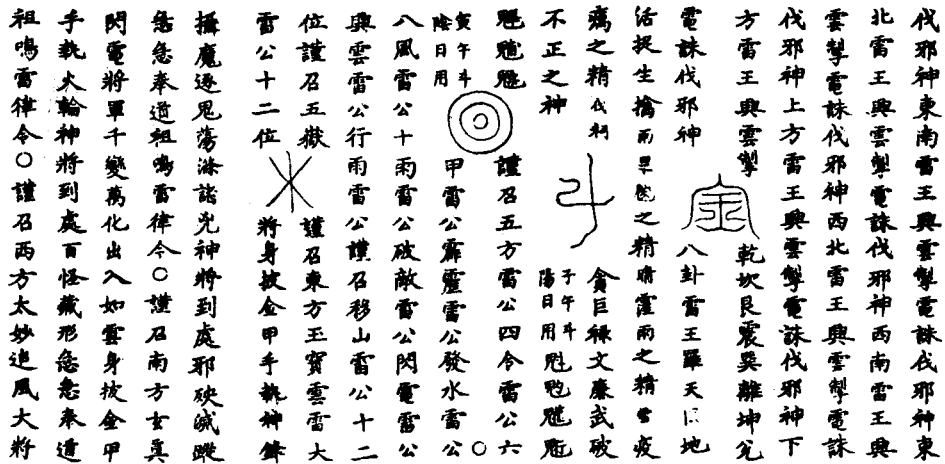 伐邪神東南雷王興雲掣電誅伐邪神東
北雷王興雲掣電誅伐邪神西南雷王興
雲掣電誅伐邪神西北雷王興雲掣電誅
伐邪神上方雷王興雲掣電誅伐邪神下
方雷王興雲掣 乾坎艮震巽離坤兌
電誅伐邪神 八卦雷王羅天 地
活捉生擒 之精 雨之精
瘟之精 貪巨祿文廉武破
不正之神 子午斗 陽日用
寅午斗 陰日用
謹召五方雷公四令雷公六
甲雷公霹靂雷公發水雷公
八風雷公十雨雷公破敵雷公閃電雷公
興雲雷公行雨雷公謹召移山雷公十二
位謹召五嶽 謹召東方玉寶雲雷大
雷公十二位 將身披金甲手執神鋒
攝魔逐鬼蕩滌諸兇神將到處邪 滅蹤
急急奉道祖鳴雷律令○謹召南方玄真
閃電將軍千變萬化出入如雲身披金甲
手執火輪神將到處百怪藏形急急奉道
祖鳴雷律令○謹召西方太妙追風大將